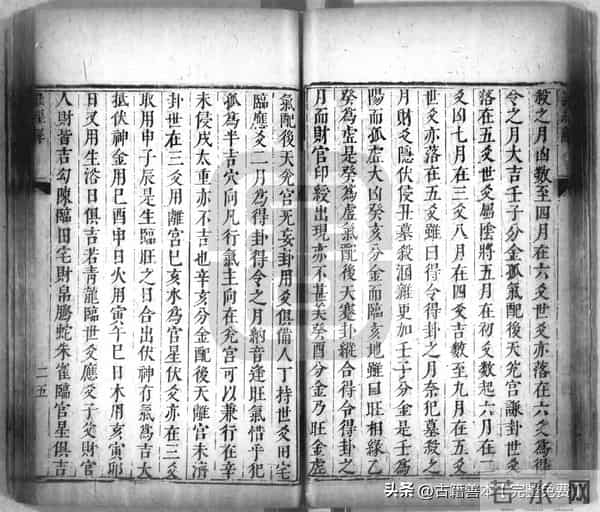 殺之月凶數至四月在六爻世爻亦落在六爻爲得
令之月大吉壬子分金孤氣配後天兌宮謙卦世爻
落在五爻世爻屬陰將五月在初爻數起六月在二
爻凶七月在三爻八月在四爻吉數至九月在五爻
世爻亦落在五爻雖曰得令得卦之月奈犯墓殺之
月財爻隱伏侵丑墓殺涸雜更加壬子分金是壬爲
陽而孤虛大凶癸亥分金而臨亥地雖曰旺相緣乙
癸爲虛是癸爲虛氣配後天蹇卦縱合得令得卦之
月而財官印殺出現亦不甚美癸酉分金乃旺金虛
氣配後天兌宮旡妄卦用爻俱備人丁持世爻田宅
臨應爻二月爲得卦得令之月納音逢旺氣惜乎犯
孤爲半吉穴向凡行氣主向在兌宮可以兼行在辛
未侵戌太重亦不吉也辛亥分金配後天離宮未濟
卦世在三爻用離宮巳亥水爲官星伏爻亦在三爻
取用申子辰是生臨旺之日合出伏神有氣爲吉大
抵伏神金用巳酉申日火用寅午巳日木用亥寅卯
日又用生浴日俱吉若青龍臨世爻應爻子父財官
人財皆吉勾陳臨田宅財帛螣蛇朱雀臨官星俱吉
二五
头条 @古籍善本